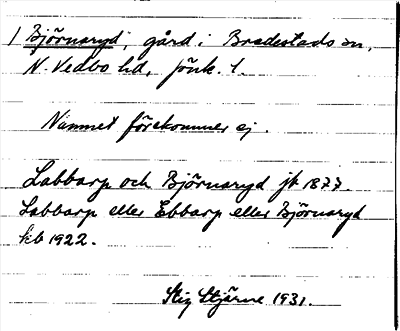 1 Björnaryd, gård i Bredestads sn,
N. Vedbo hd, Jönk. l.
Namnet förekommer ej.
Labbarp och Björnaryd jk 1877.
Labbarp eller Ebbarp eller Björnaryd
kb 1922.
Stig Stjärne 1931.